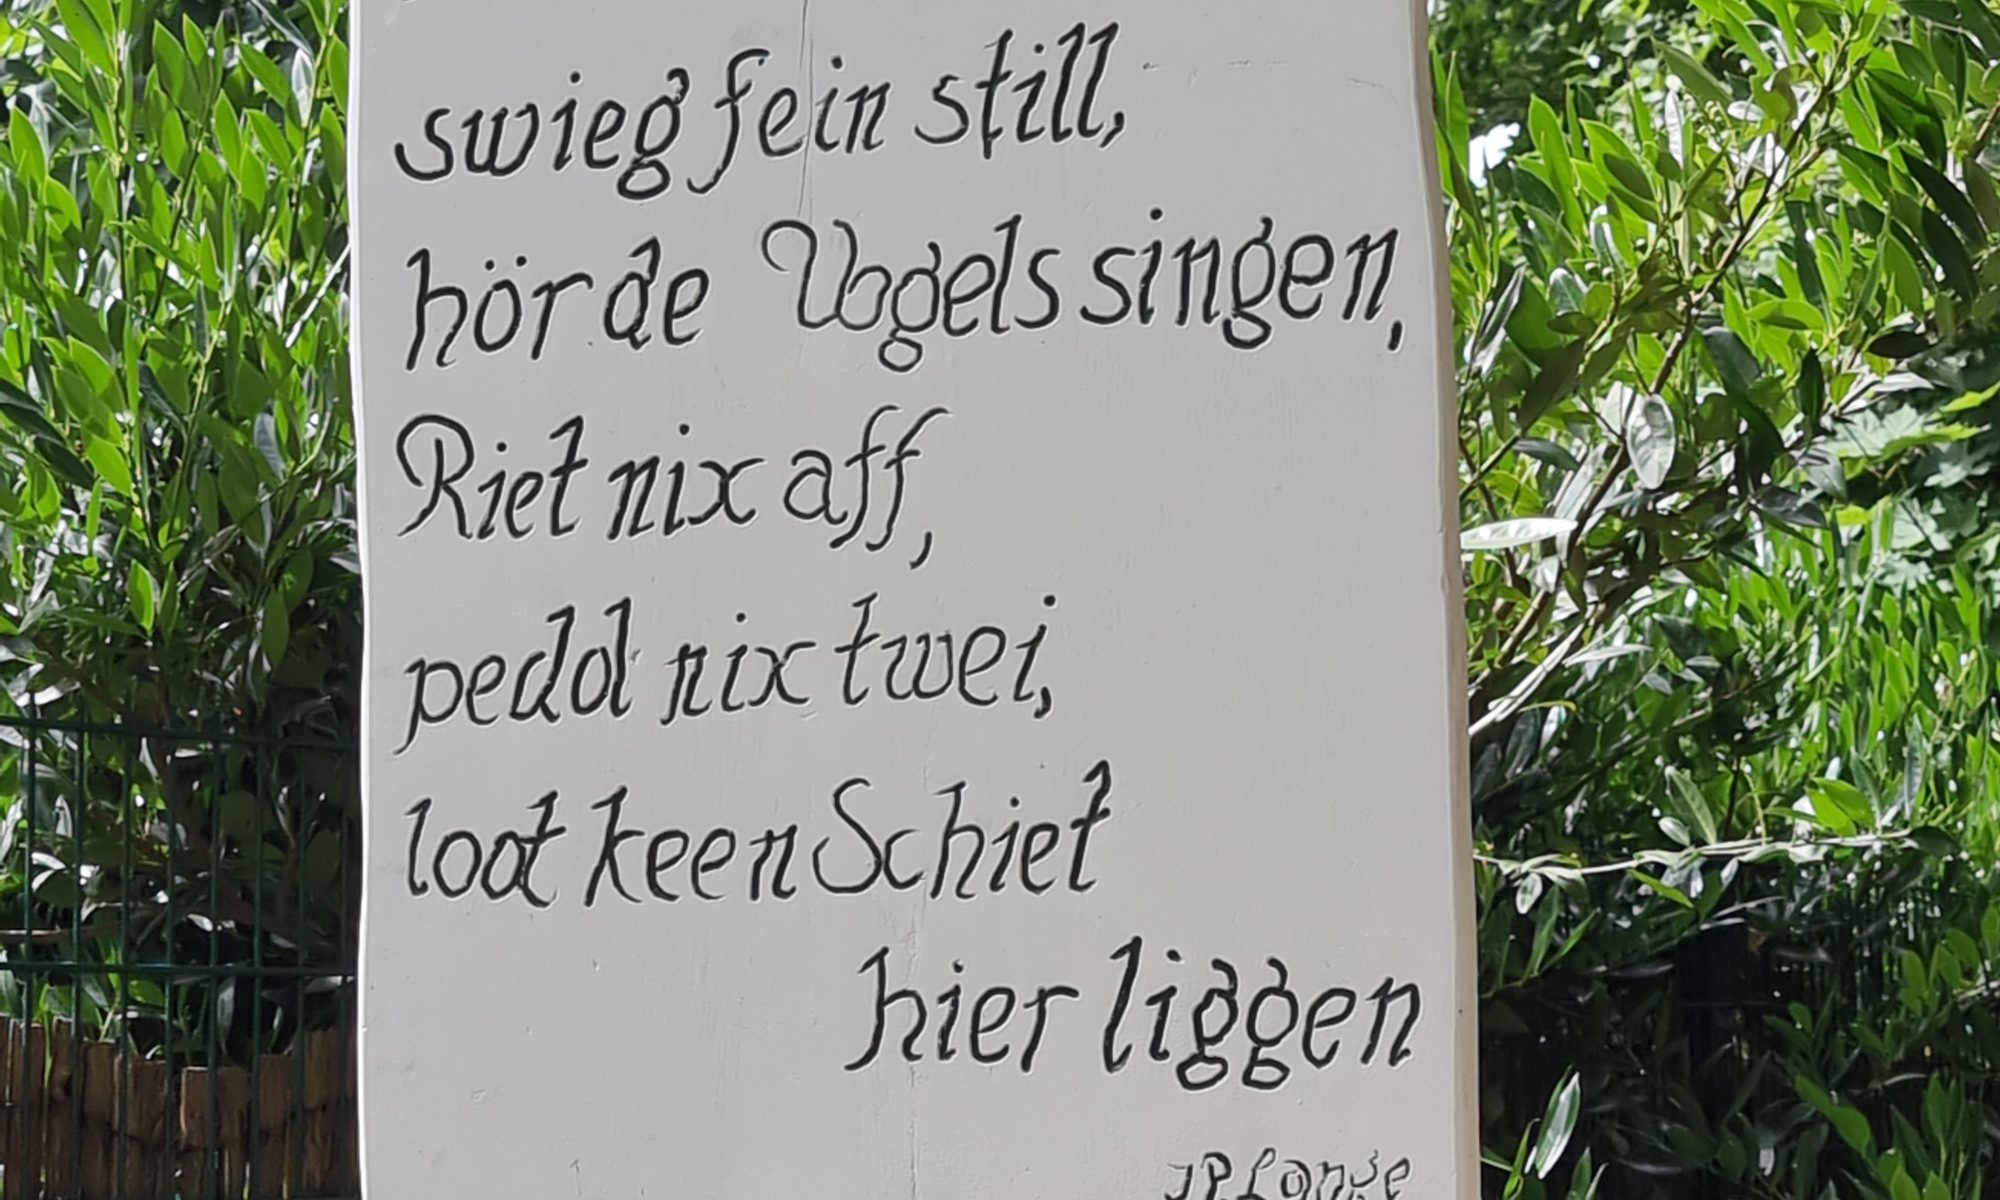 swieg fein still,
hör de Vogels singen,
Riet nix aff,
pedd nix twei,
loot keen Schiet
hier liggen